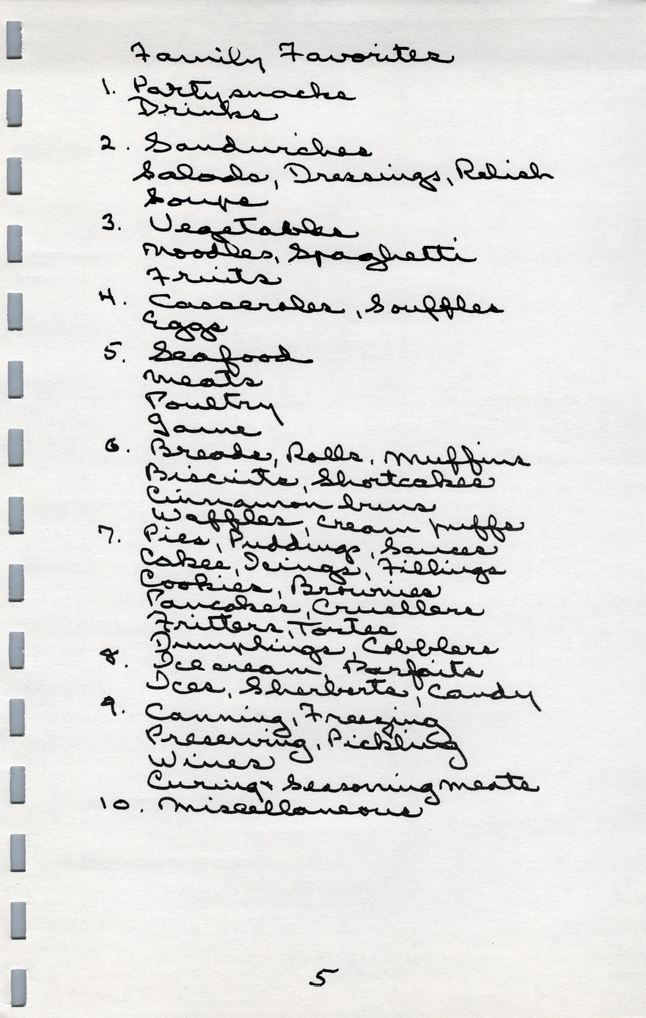 Family Favorites
1. Party snacks
Drinks
2. Sandwiches
Salads, Dressings, Relish
Soups
3. Vegetables
Noodles, Spaghetti
Fruits
4. Casseroles, Souffles
Eggs
5. Seafood
Meats
Poultry
Game
6. Breads, Rolls, Muffins
Biscuits, Shortcakes
Cinnamon buns
Waffles, Cream puffs
7. Pies, Puddings, Sauces
Cakes, Icings, Fillings
Cookies, Brownies
Pancakes, Cruellers
Fritters, Tortes
Dumplings, Cobblers
8. Ice cream, Parfaits
Ices, Sherberts, Candy
9. Canning, Freezing
Preserving, Pickling
Wines
Curing + Seasoning meats
10. Miscellaneous
5